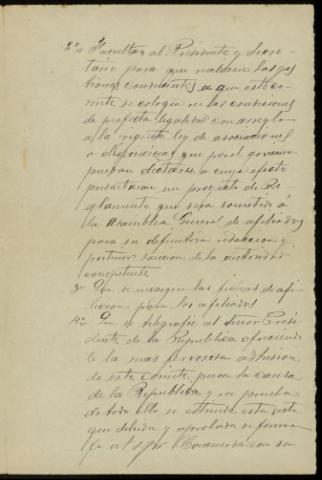 2º Facultar al Presidente y Secre-
tario para que realicen las ges-
tiones consiguientes a que este co-
mite se coloque en las condiciones
de perfecta legalidad con arreglo
a la vigente ley de asociaciones
o disposiciones que por el gobierno
puedan dictarse, a cuyo efecto
presentaran un proyecto de Re-
glamento que sera sometido á
la Asamblea General de afiliados
para su definitiva redaccion y
posterior sancion de la autoridad
competente
3º Que se encarguen las fichas de afi-
liacion para los afiliados
4º Que se telegrafie al Señor Presi-
dente de la Republica ofreciendo
le la mas fervorosa adhesion
de este comite para la causa
de la Republica y en prueba
de todo ello se extiende esta acta
que leida y aprobada se firma